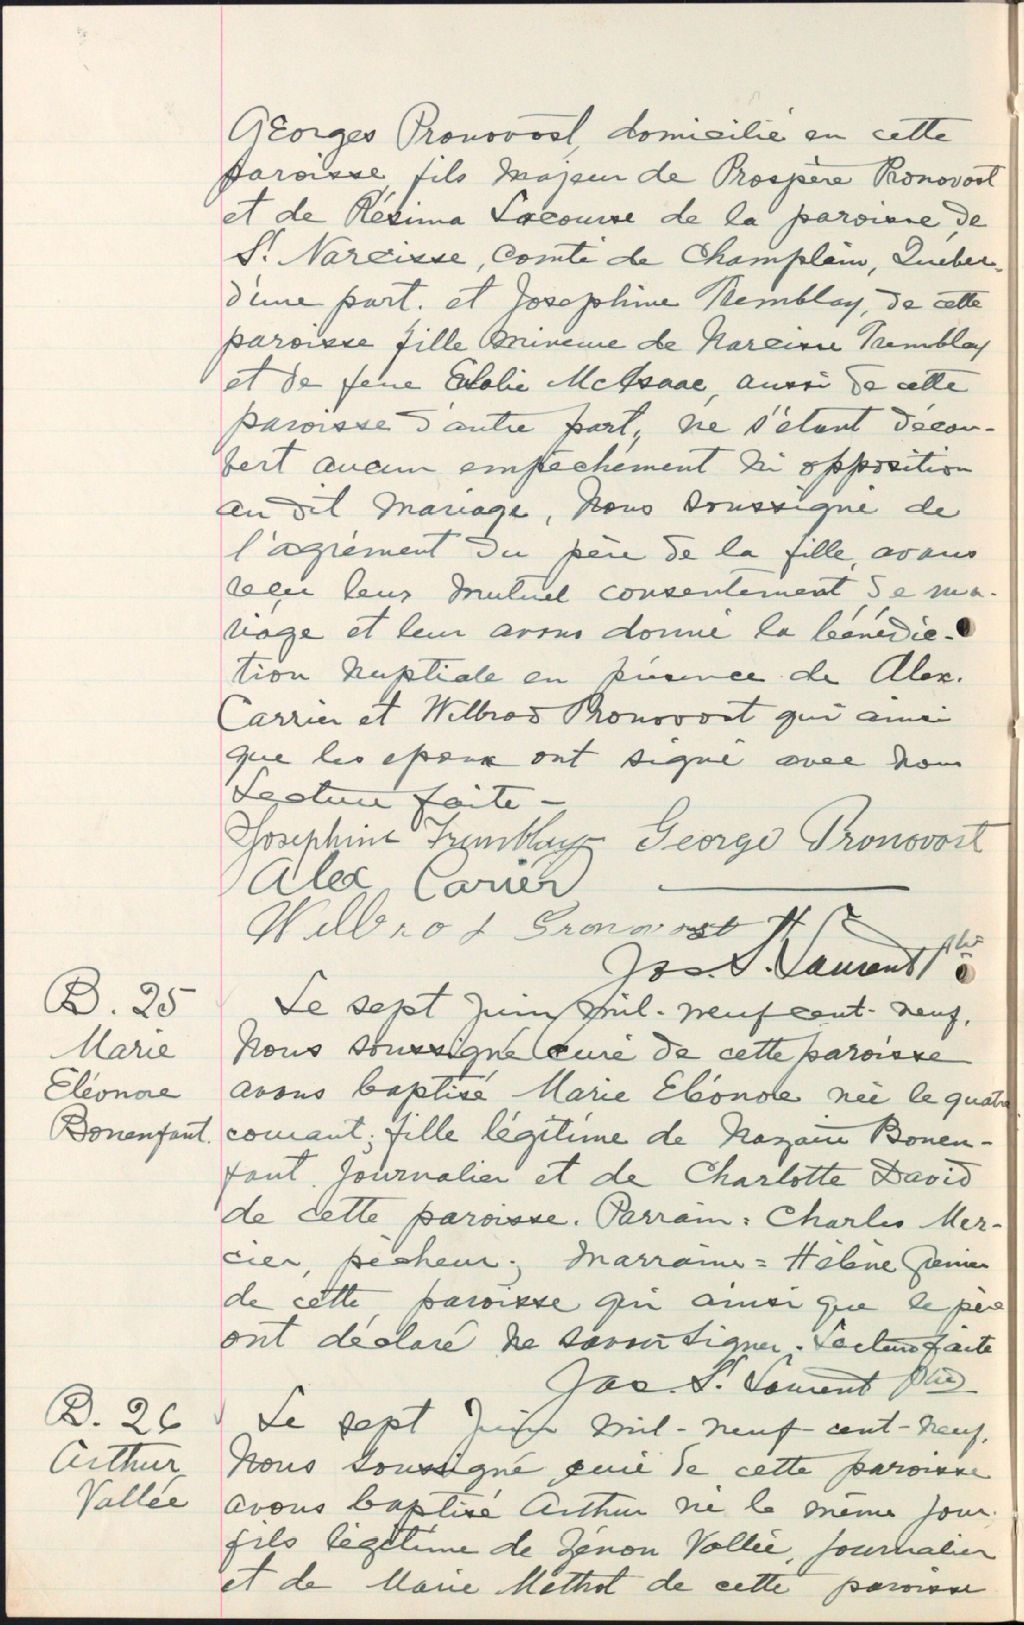 GEorges Pronovost, domicilié en cette
paroisse, fils majeur de Prospère Pronovost
et de Résima Lacourse de la paroisse de
St. Narcisse, comté de Champlain, Québec,
d'une part. et Josephine Tremblay, de cette
paroisse fille mineure de Narcisse Tremblay
et de feue Elalie McIsaac, aussi de cette
paroisse d'autre part, ne s'étant décou-
vert aucun empêchement ni opposition
au dit mariage, Nous soussigné de
l'agrément du père de la fille, avons
reçu leur mutuel consentement de ma-
riage et leur avons donné la bénédic-
tion nuptiale en présence de Alex.
Carrier et Wilbrod Pronovost qui ainsi
que les epoux ont signé avec nous
Lecture faite -
Josephine Tremblay George Pronovost
Alex Carier
Wilbrod Pronovost
Jos. St. Laurent Ptre
B. 25
Marie
Eléonore
Bonenfant.
Le sept Juin mil-neuf cent-neuf.
Nous soussigné curé de cette paroisse
avons baptisé Marie Eléonore née le quatre
courant, fille légitime de Nazaire Bonen-
fant, Journalier et de Charlotte David
de cette paroisse. Parrain: Charles Mer-
cier, pêcheur; Marraine = Hélène
de cette paroisse qui ainsi que le père
ont déclaré ne savoir signer. Lecture faite
Jos. St. Laurent Ptre
B. 26
Arthur
Vallée
Le sept Juin mil-neuf-cent-neuf.
Nous soussigné curé de cette paroisse
avons baptisé Arthur né le même jour,
fils légitime de Zénon Vallée, journalier
et de Marie Méthot de cette paroisse